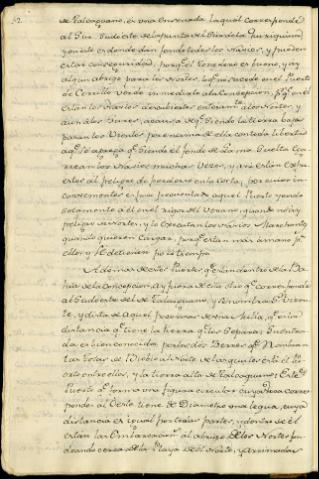 52.
de Talcaguano, es una ensenada la qual corresponde
al Sur Sudoeste de la punta del Sur de la Quiriquina
y en esta es donde dan fondo todos los Navios, y pueden
estar con seguridad, porq.e el tenedero es bueno, y ay
algun abrigo para los Nortes, lo q.e no sucede en el Puerto
de Cerrillo Verde inmediato a la Concepcion, p.r q.e en el
estan los Navios descubiertos enteram.te al Norte, y
aun a los Sures, a causa de q.e siendo la tierra baja
pasan los Vientos por encima de ella con toda libertad
aq.e se agrega q.e siendo el fondo de lama suelta
los Navios muchas veces, y assi estan expu-
estos al peligro de perderse en la costa, por cuios in-
convenientes es poco frecuentado aquel Puerto yendo
solamente a el en el rigor del Verano quando no ay
peligro de Nortes, y lo executan los Navios Marchantes
quando quieren Cargar, porq.e estan mas a mano p.a
ello, y se detienen poco tiempo.
Ademas de estos Puertos q.e son dentro de la Ba-
hia de la Concepcion, ay fuera de ella otro q.e corresponde
al Sudoeste del de Talcaguano, y se nombra S.n Vicen-
te, y dista de aquel poco mas de una Milla, q.e es la
distancia q.e tiene la tierra q.e los separa; su entra-
da es bien conocida por los dos Cerros q.e Nombran
Tetas de Biobio al Norte de las quales está el Pu-
erto entre ellas, y la tierra alta de Talcaguano; Este
Puerto q.e forma una figura circular cuya boca corres-
ponde al Oeste tiene de Diametro una legua, cuya
distancia es igual por todas partes, y dentro de el
estan las Embarcaciones al abrigo de los Nortes fon-
deando cerca de la Playa de el Norte, y arrimadas